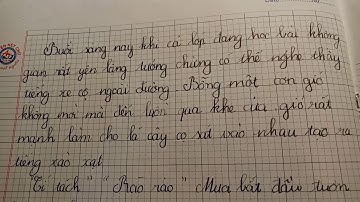 Buổi sáng nay khi cả lớp đang học bài không
gian rất yên lặng tưởng chừng có thể nghe thấy
tiếng xe cộ ngoài đường. Bỗng một cơn gió
không mời mà đến luồn qua khe cửa gió rất
mạnh làm cho lá cây cọ xát vào nhau tạo ra
tiếng xào xạt
"Tí tách" "Rào rào" Mưa bắt đầu tuôn